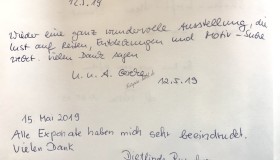 12.5.19
Wieder eine ganz wundervolle Ausstellung, die
Lust auf Reisen, Entdeckungen und Motiv-Suche
weckt. Vielen Dank sagen
U. u. A.
12.5.19
15 Mai 2019
Alle Exponate haben mich sehr beeindruckt.
Vielen Dank
Dietlinde